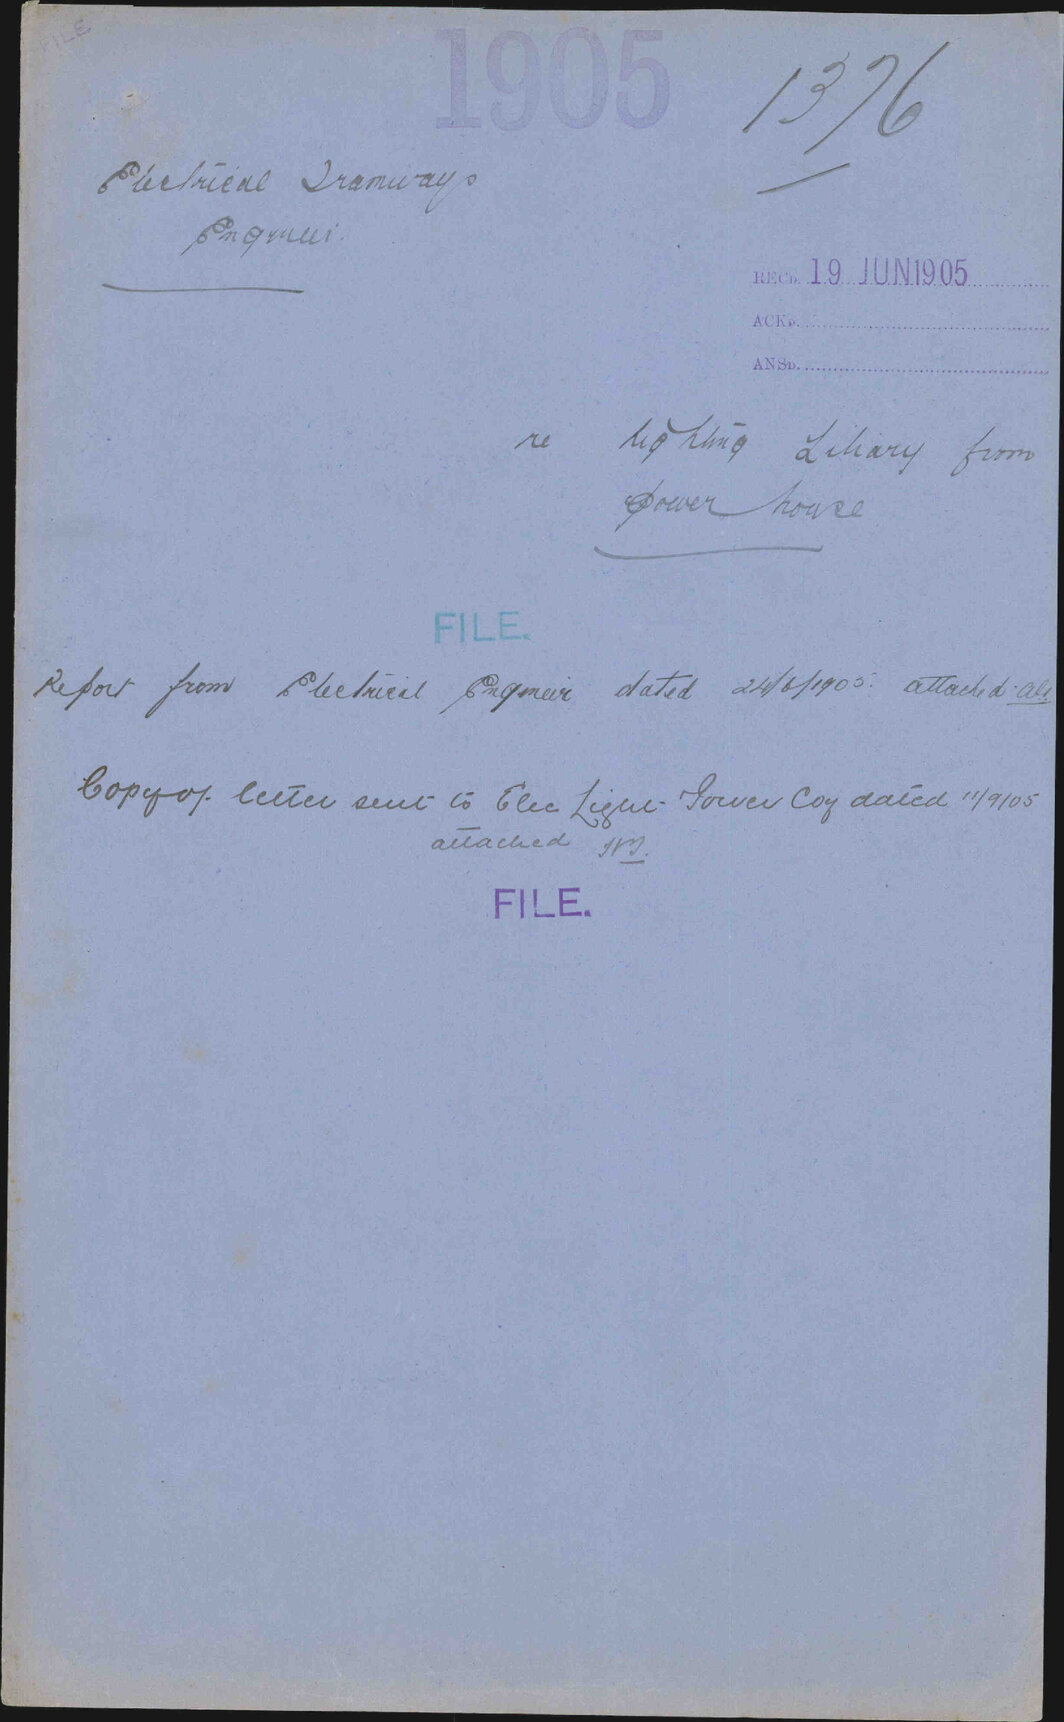 FILE
1905
1376
Electrical Tramways
Engineer.
RECD. 19 JUN 1905
ACKD.
ANSD.
re lighting Library from
power house
FILE.
Report from Electrical Engineer dated 24/6/1905. attached
Copy of letter sent to Elec Light Power Coy dated 11/9/05
attached
FILE.